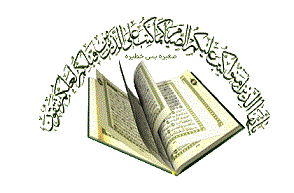 يا أيها الذين آمنوا كتب عليكم الصيام كما كتب على الذين من قبلكم لعلكم تتقون
صغيره بس خطيره